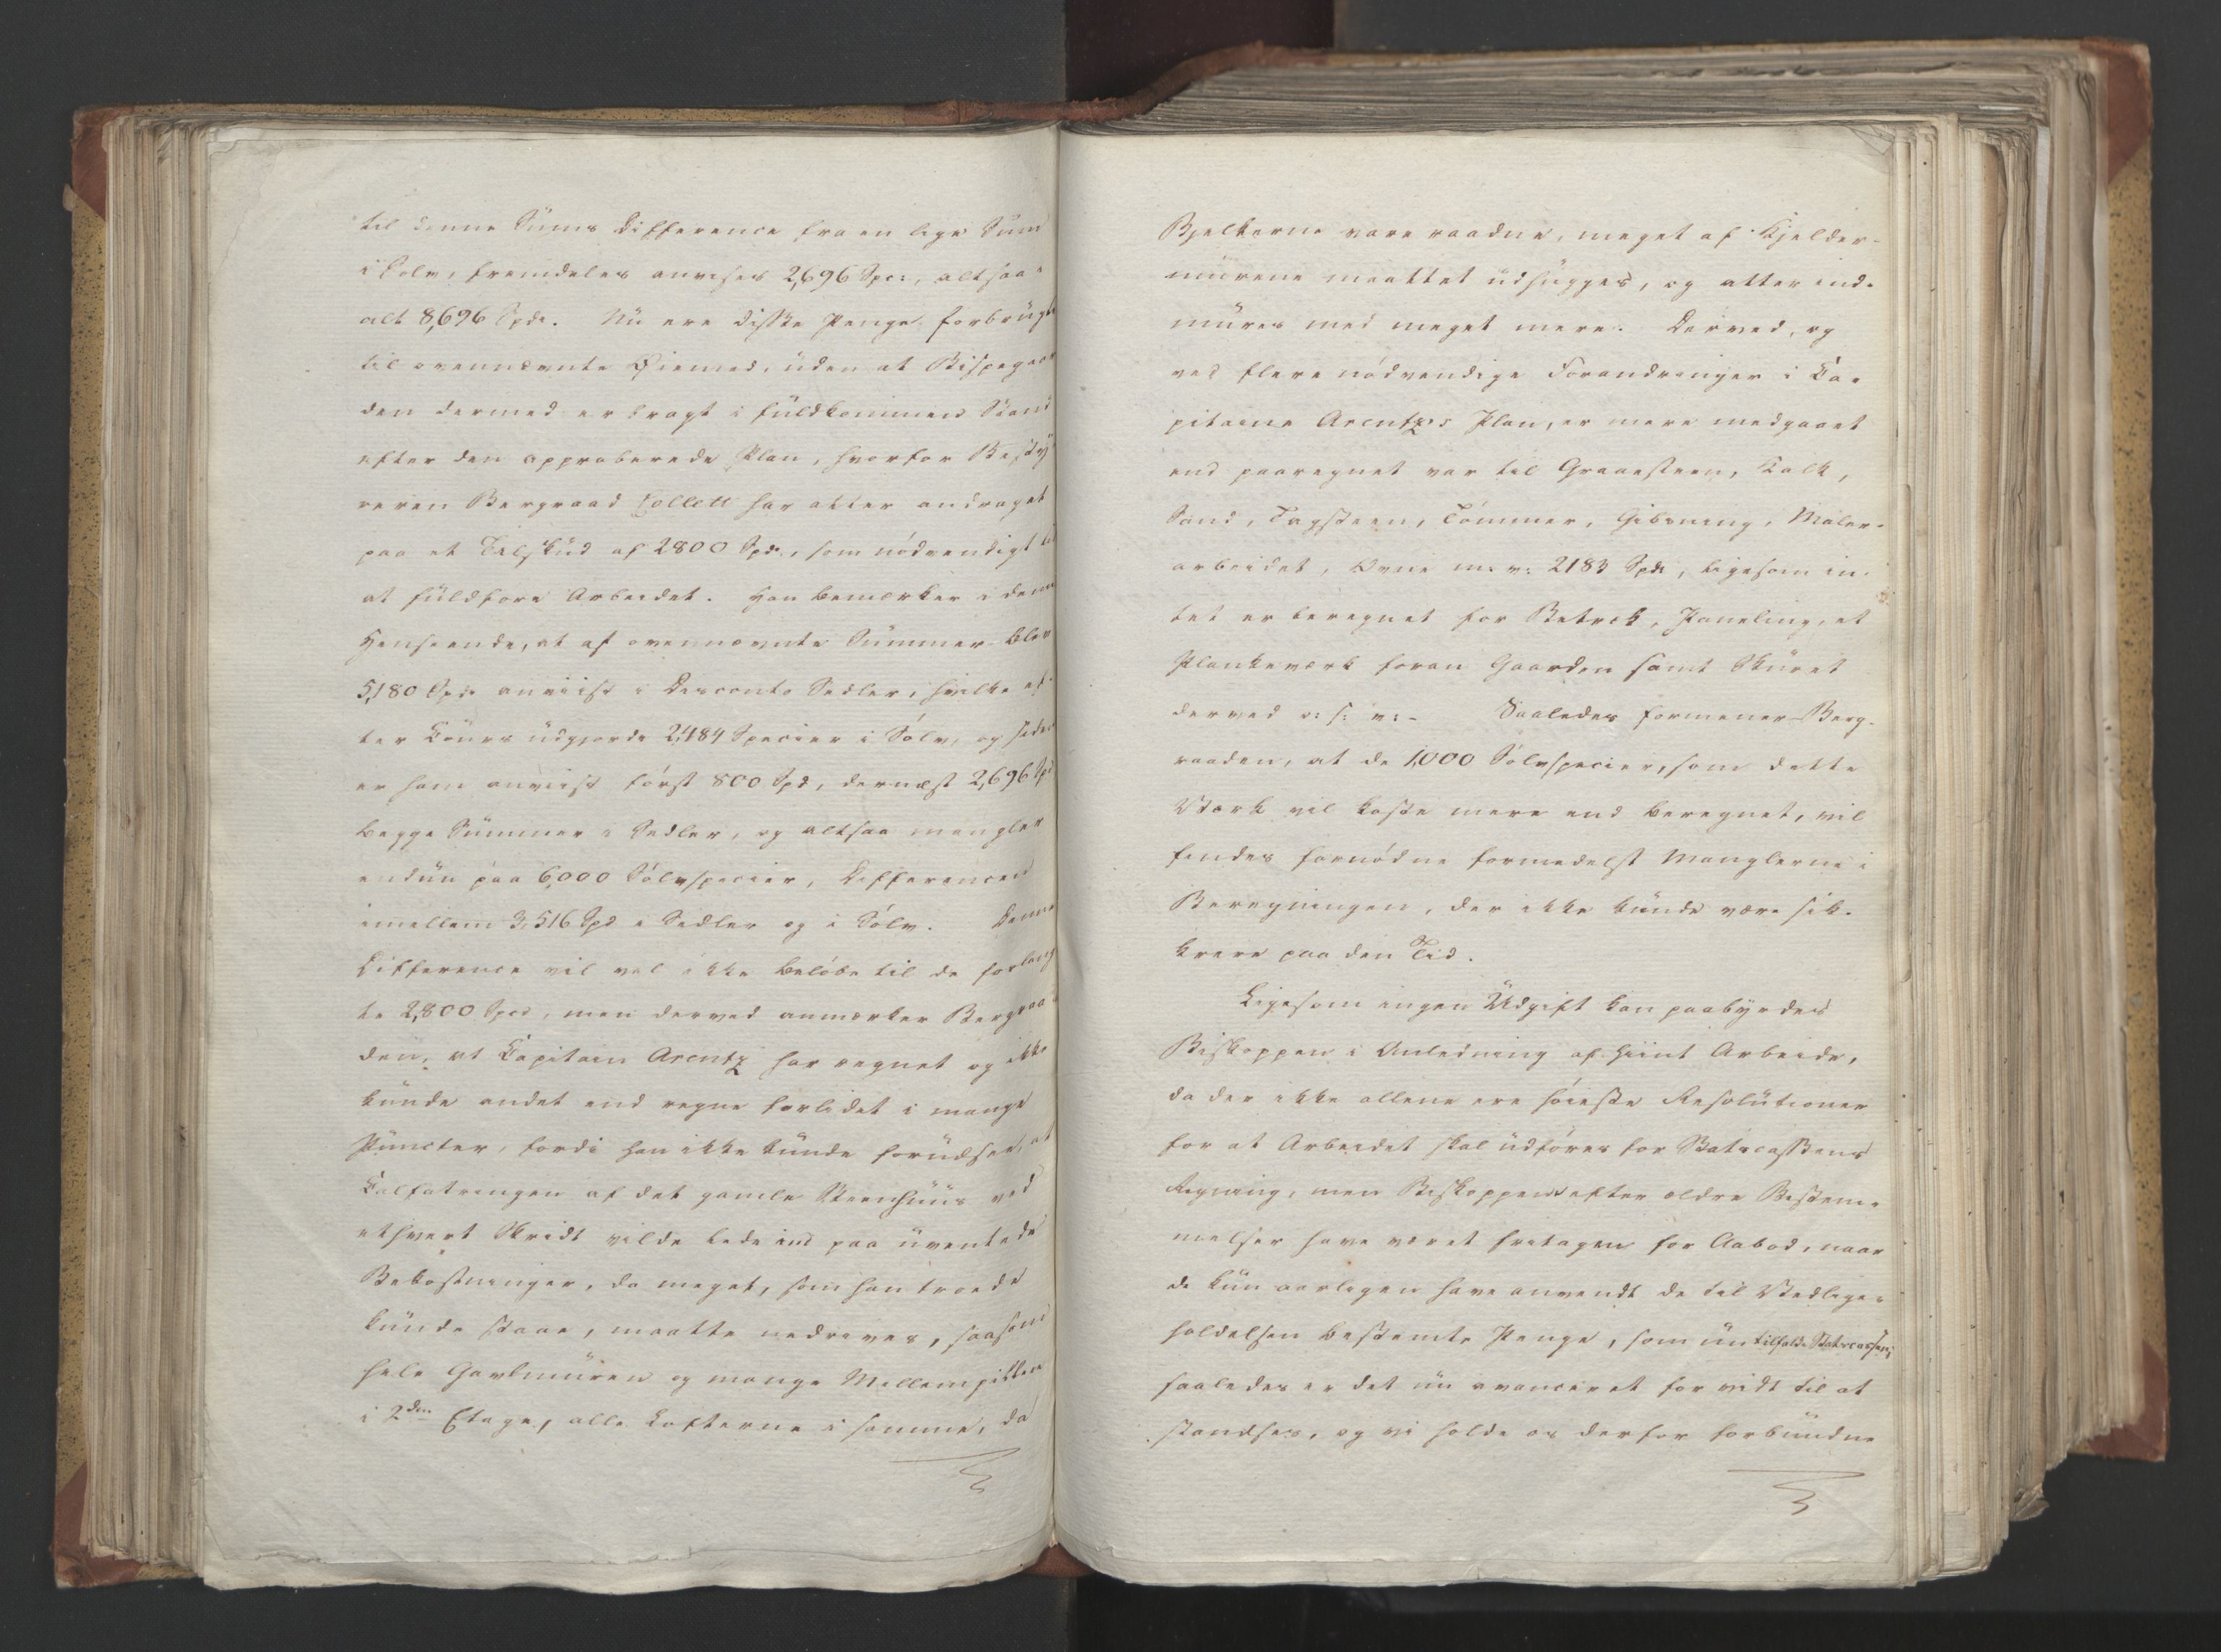 til denne Sums Difference fra en lige Sum
i Sølv, fremdeles anvises 2,696 Spec:, altsaa i
alt 8,696 Spdr. Nu ere disse Penge forbrugte
til ovennævnte Øiemed, uden at Bispegaar
den dermed er bragt i fuldkommen Stand
efter den approberede Plan, hvorfor Besty-
reren Bergraad Collett har atter andraget
paa et Tilskud af 2800 Spdr., som nødvendigt til
at fuldføre Arbeidet. Han bemærker i denne
Henseende, at af ovennævnte Summer blev
5,180 Spdr anviist i Disconto Sedler, hvilke ef-
ter Cours udgjorde 2,484 Specier i Sølv, og siden
er ham anviist først 800 Spd, dernæst 2,696 Spd
begge Summer i Sedler, og altsaa mangler
endnu paa 6,000 Sølvspecier, Differencen
imellem 3,516 Spd i Sedler og i Sølv. Denne
Difference vil vel ikke beløbe til de forlang
te 2,800 Spd, men derved anmærker Bergraa
den, at Capitain Arentz har regnet og ikke
kunde andet end regne forlidet i mange
Puncter, fordi han ikke kunde forudsee, at
Calfatringen af det gamle Steenhuus ved
ethvert Skridt vilde lede ind paa uventede
Bekostninger, da meget, som han troede
kunde staae, maatte nedrives, saasom
hele Gavlmuren og mange Mellempiller
i 2den Etage, alle Lofterne i samme, da
Bjelkerne vare raadne, meget af Kjelder-
murene maattet udhugges, og atter ind-
mures med meget mere. Derved, og
ved flere nødvendige Forandringer i Ca-
pitaine Arentz's Plan, er mere medgaaet
end paaregnet var til Graaesteen, Kalk,
Sand, Tagsteen, Tømmer, Gibsning, Maler-
arbeidet, Ovne m: v: 2183 Spdr, ligesom in-
tet er beregnet for Betræk, Paneling, et
Plankeværk foran Gaarden samt Skuret
derved o: s: v: - Saaledes formener Berg-
raaden, at de 1,000 Sølvspecier, som dette
Værk vil koste mere end beregnet, vil
findes fornødne formedelst Manglerne i
Beregningen, der ikke kunde være sik-
krere paa den Tid.
Ligesom ingen Udgift kan paabyrdes
Biskoppen i Anledning af hiint Arbeide,
da der ikke allene ere høieste Resolutioner
for at Arbeidet skal udføres for Statscassens
Regning, men Biskopperne efter ældre Bestem-
melser have været fritagen for Aabod, naar
de kun aarligen have anvendt de til Vedlige-
holdelsen bestemte Penge, som nu tilfalde Statscassen,
saaledes er det nu avanceret for vidt til at
standses, og vi holde os derfor forbundne